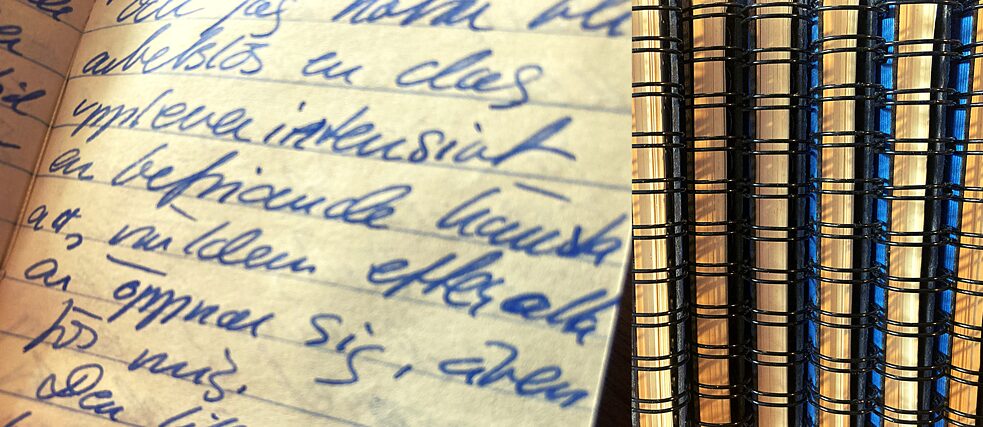 och jag
arbetslös en dag
upplever intensivt
en befriande känsla
att världen efter alla
år öppnar sig, även
för mig.
Den